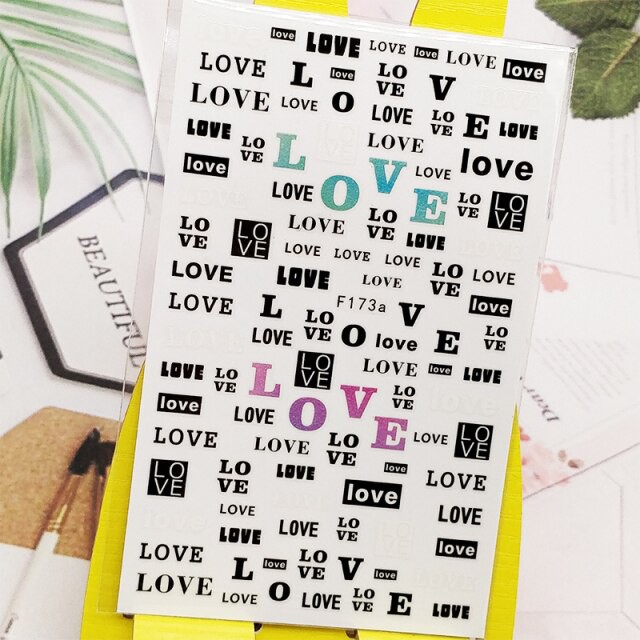 love LOVE LOVE love LOVE love
LOVE L love LO VE V
LOVE LOVE O LOVE LO VE E LOVE
LOVE LO VE L LOVE V LOVE love
love LOVE O E LO VE LOVE
LO VE LOVE LOVE LO VE LOVE
LOVE LOVE LOVE LO VE LOVE
LOVE LOVE LOVE
LOVE L LO VE F173a V love
LOVE O love E LO VE
LOVE LO VE L LOVE LOVE love LOVE
love LOVE O V LO VE
LOVE LOVE LO VE E LOVE LOVE
LOVE LO VE LOVE love LOVE
LOVE love LOVE
LOVE LOVE LO VE love
LOVE L love LO VE V love
LOVE LOVE O LOVE LO VE E LOVE
BEAUTIFUL